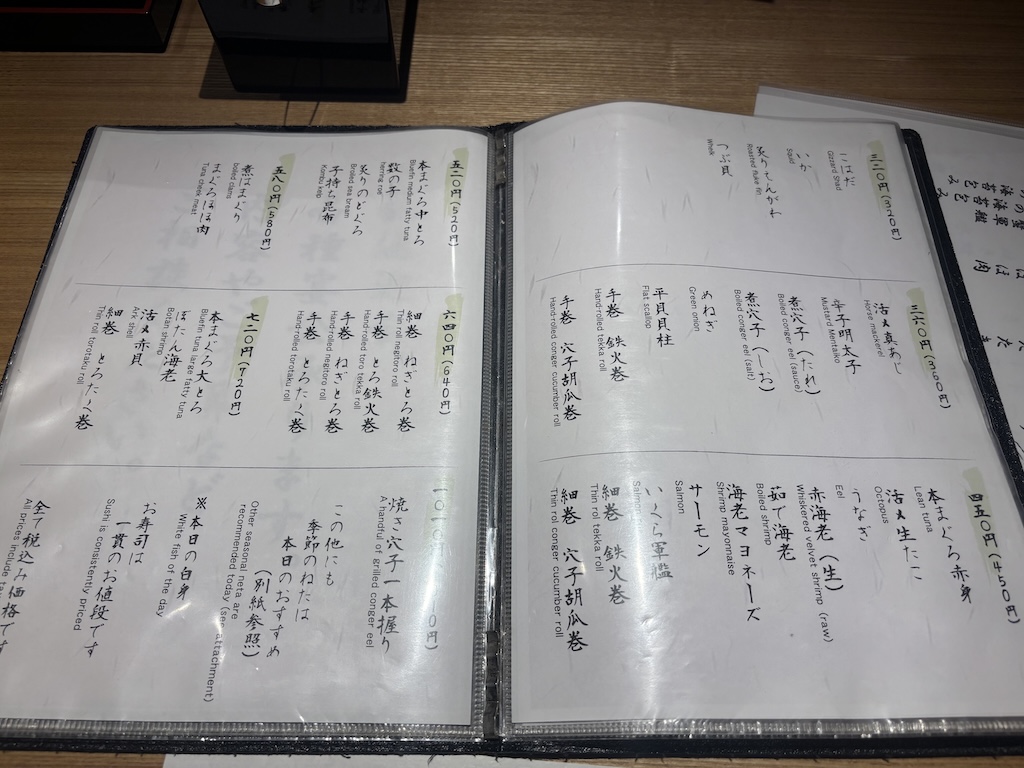 三二〇円(320円)
こはだ
Gizzard Shad
いか
Squid
炙りえんがわ
Roasted fluke fin
つぶ貝
Whelk
三六〇円(360円)
活〆真あじ
Horse mackerel
辛子明太子
Mustard Mentaiko
煮穴子(たれ)
Boiled conger eel (sauce)
煮穴子(しお)
Boiled conger eel (salt)
めねぎ
Green onion
平貝貝柱
Flat scallop
手巻 鉄火巻
Hand-rolled tekka roll
手巻 穴子胡瓜巻
Hand-rolled conger cucumber roll
四五〇円(450円)
本まぐろ赤身
Lean tuna
活〆生たこ
Octopus
うなぎ
Eel
赤海老(生)
Whiskered velvet shrimp (raw)
茹で海老
Boiled shrimp
海老マヨネーズ
Shrimp mayonnaise
サーモン
Salmon
いくら軍艦
Salmon
細巻 鉄火巻
Thin rol tekka roll
細巻 穴子胡瓜巻
Thin rol conger cucumber roll
五二〇円(520円)
本まぐろ中とろ
Bluefin medium fatty tuna
数の子
herring roll
炙りのどぐろ
Broiled sea bream
子持ち昆布
Komochi kelp
五八〇円(580円)
煮はまぐり
boiled clams
まぐろほほ肉
Tuna cheek meat
六四〇円(640円)
細巻 ねぎとろ巻
Thin roll negitoro roll
手巻 とろ鉄火巻
Hand-rolled toro tekka roll
手巻 ねぎとろ巻
Hand-rolled negitoro roll
手巻 とろたく巻
Hand-rolled torotaku roll
七二〇円(720円)
本まぐろ大とろ
Bluefin tuna large fatty tuna
ぼたん海老
Botan shrimp
活〆赤貝
Ark shell
細巻 とろたく巻
Thin roll torotaku roll
焼き穴子一本握り
A handful of grilled conger eel
この他にも
季節のねたは
本日のおすすめ
(別紙参照)
Other seasonal neta are
recommended today (see attachment)
※本日の白身
White fish of the day
お寿司は
一貫のお値段です
Sushi is consistently priced
全て税込み価格です
All prices include tax